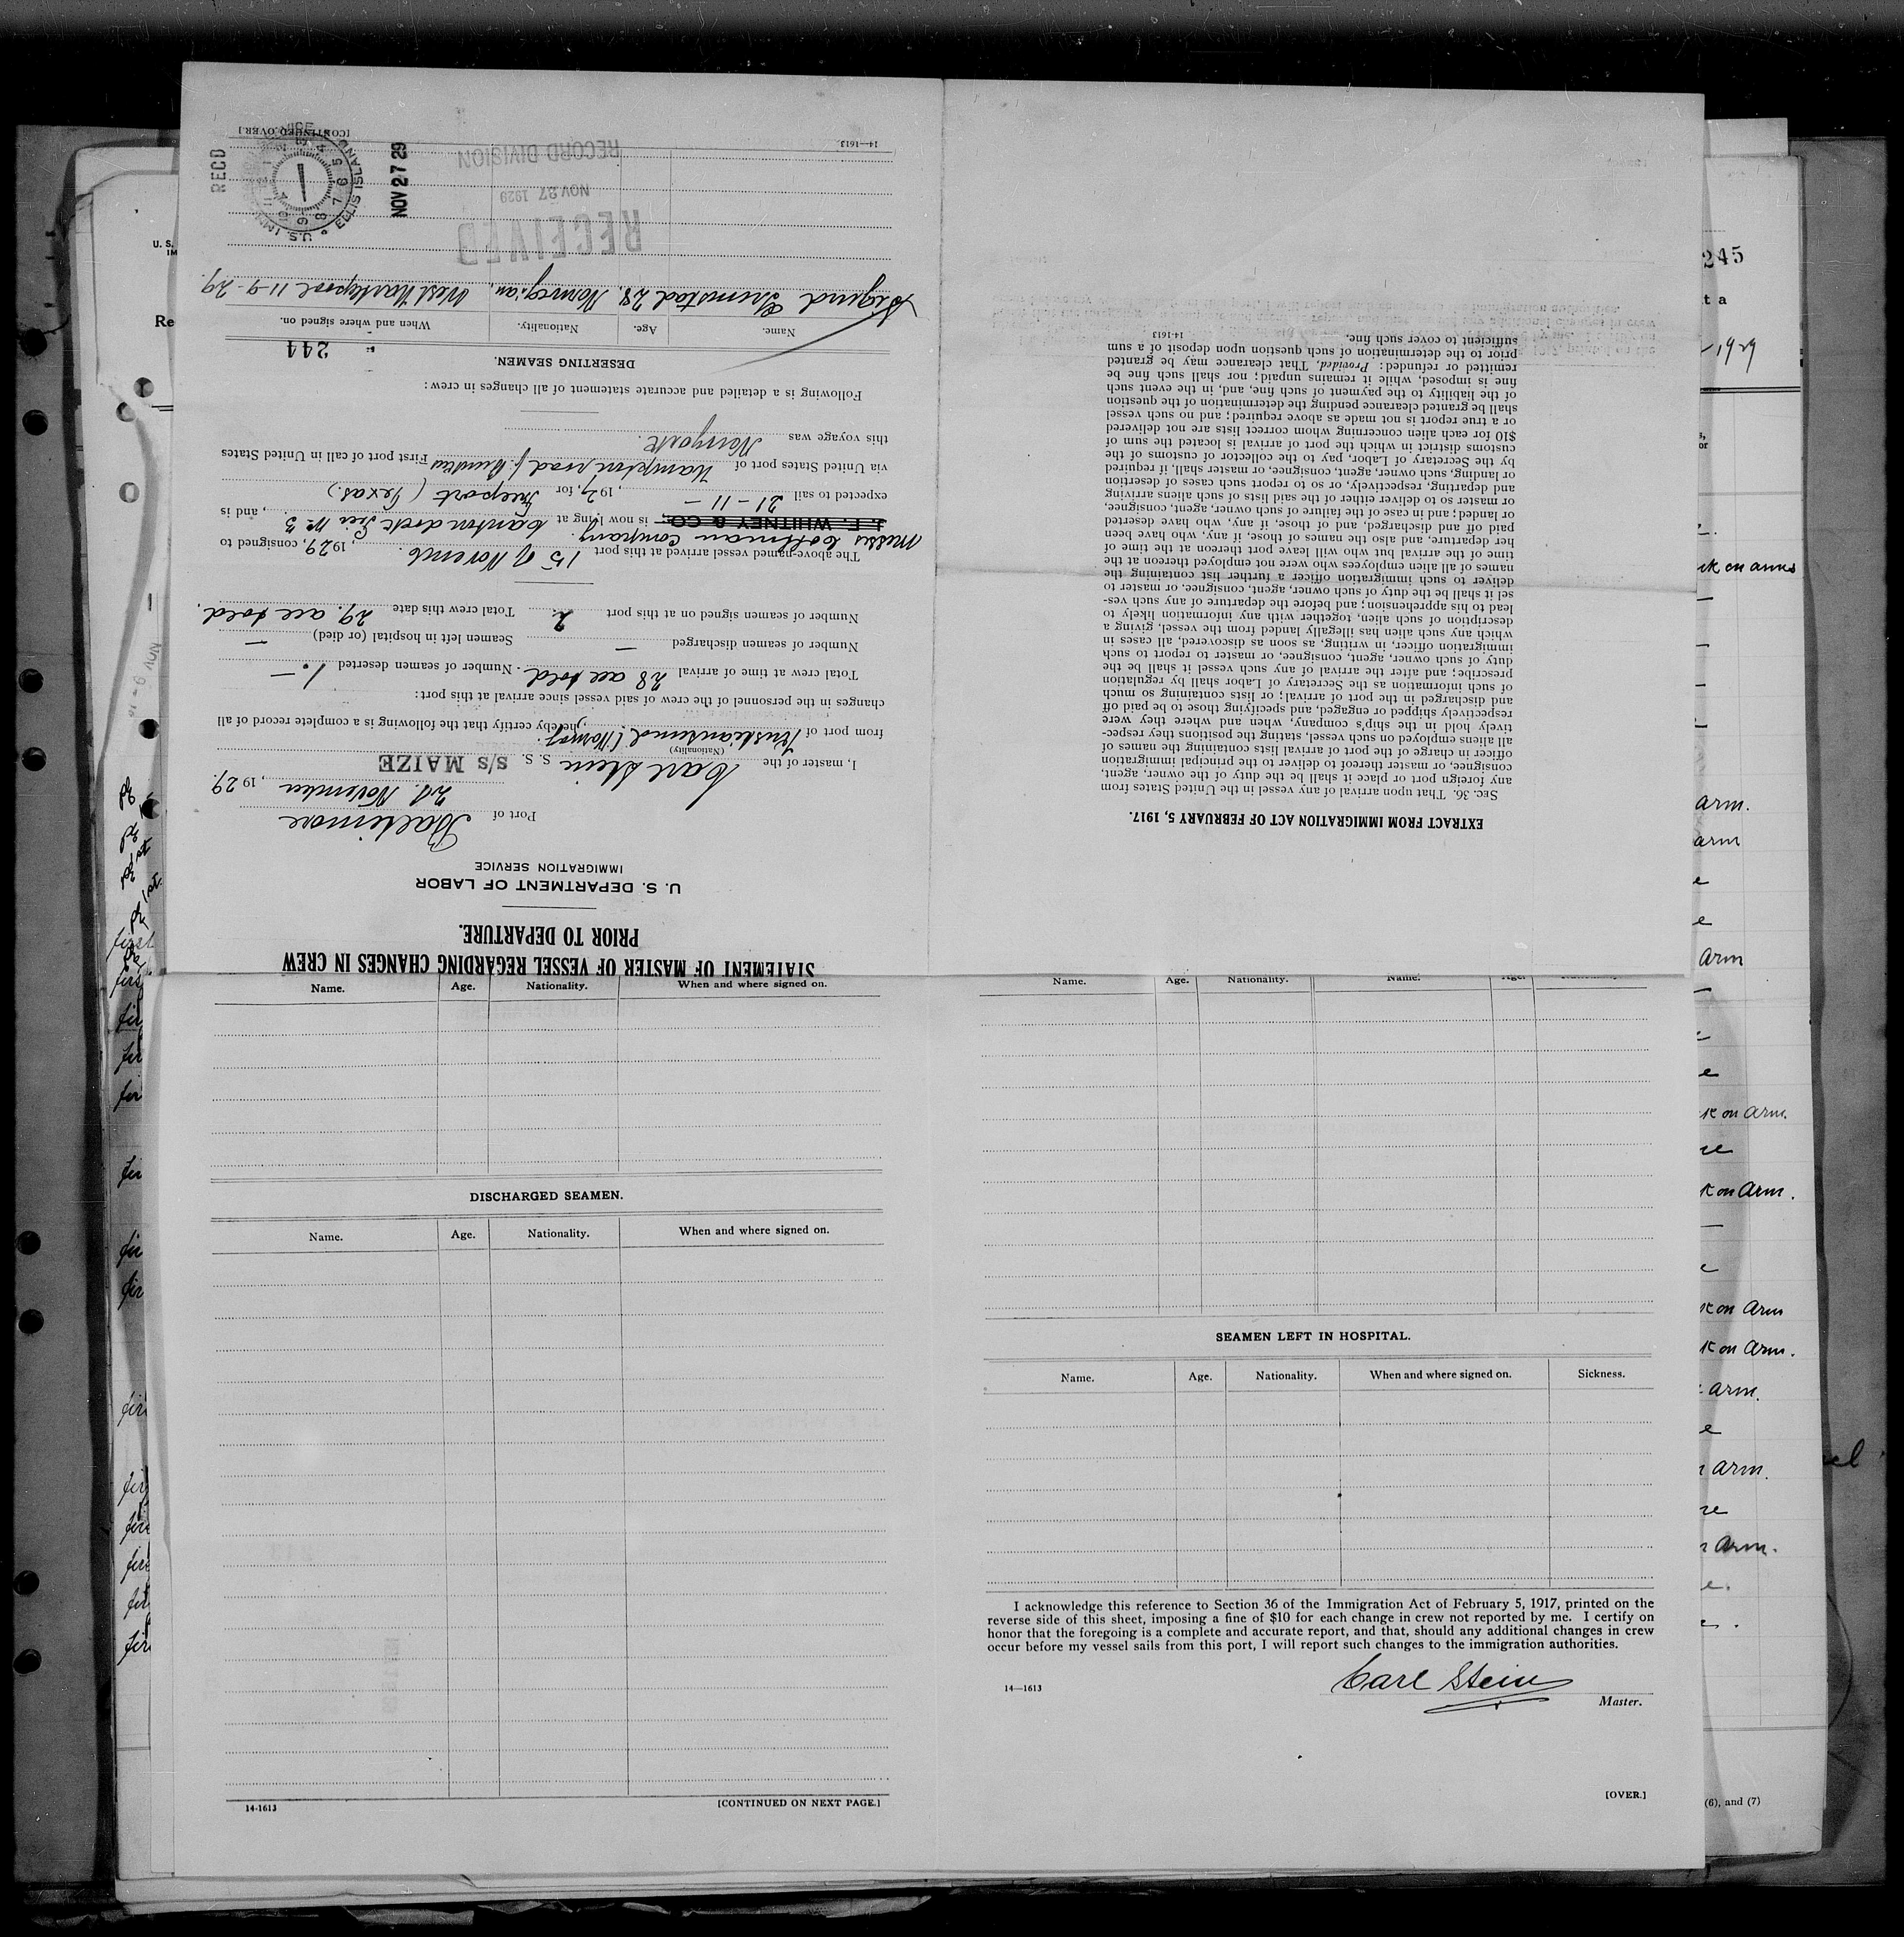 STATEMENT OF MASTER OF VESSEL REGARDING CHANGES IN CREW
PRIOR TO DEPARTURE.
U. S. DEPARTMENT OF LABOR
IMMIGRATION SERVICE
Port of Baltimore
21. November, 1929.
I, master of the Carl Stein S. S. S/S MAIZE
(Nationality)
from port of Kristiansund (Norway), hereby certify that the following is a complete record of all
changes in the personnel of the crew of said vessel since arrival at this port:
Total crew at time of arrival 28 all told. Number of seamen deserted 1. —
Number of seamen discharged — Seamen left in hospital (or died) —
Number of seamen signed on at this port 2 Total crew this date 29. all told.
The abovenamed vessel arrived at this port 15 of Novemb., 1929, consigned to
Messrs Cottman Company.
J. F. WHITNEY & CO., is now lying at Canton dock Pier No 3, and is
expected to sail 21 – 11 –, 1929, for Freeport (Texas.)
via United States port of Hampton road f. Bunkers First port of call in United States
this voyage was Newyork.
Following is a detailed and accurate statement of all changes in crew:
DESERTING SEAMEN.
244
Name. Age. Nationality. When and where signed on.
Sigurd Grimstad 28. Norwegian. West Hartlepool 11-9-29.
RECEIVED
NOV 27 1929
RECORD DIVISION
RECD
NOV 27 29
U.S. IMM
ELLIS ISLAND
14—1613
[CONTINUED OVER.]
EXTRACT FROM IMMIGRATION ACT OF FEBRUARY 5, 1917.
SEC. 36. That upon arrival of any vessel in the United States from
any foreign port or place it shall be the duty of the owner, agent,
consignee, or master thereof to deliver to the principal immigration
officer in charge of the port of arrival lists containing the names of
all aliens employed on such vessel, stating the positions they respec-
tively hold in the ship's company, when and where they were
respectively shipped or engaged, and specifying those to be paid off
and discharged in the port of arrival; or lists containing so much
of such information as the Secretary of Labor shall by regulation
prescribe; and after the arrival of any such vessel it shall be the
duty of such owner, agent, consignee, or master to report to such
immigration officer, in writing, as soon as discovered, all cases in
which any such alien has illegally landed from the vessel, giving a
description of such alien, together with any information likely to
lead to his apprehension; and before the departure of any such ves-
sel it shall be the duty of such owner, agent, consignee, or master to
deliver to such immigration officer a further list containing the
names of all alien employees who were not employed thereon at the
time of the arrival but who will leave port thereon at the time of
her departure, and also the names of those, if any, who have been
paid off and discharged, and of those, if any, who have deserted
or landed; and in case of the failure of such owner, agent, consignee,
or master so to deliver either of the said lists of such aliens arriving
and departing, respectively, or so to report such cases of desertion
or landing, such owner, agent, consignee, or master shall, if required
by the Secretary of Labor, pay to the collector of customs of the
customs district in which the port of arrival is located the sum of
$10 for each alien concerning whom correct lists are not delivered
or a true report is not made as above required; and no such vessel
shall be granted clearance pending the determination of the question
of the liability to the payment of such fine, and, in the event such
fine is imposed, while it remains unpaid; nor shall such fine be
remitted or refunded: Provided, That clearance may be granted
prior to the determination of such question upon deposit of a sum
sufficient to cover such fine.
14-1613
Name. Age. Nationality. When and where signed on.
DISCHARGED SEAMEN.
Name. Age. Nationality. When and where signed on.
14-1613
[CONTINUED ON NEXT PAGE.]
Name. Age. Nationality. Name. Age. Nationality.
SEAMEN LEFT IN HOSPITAL.
Name. Age. Nationality. When and where signed on. Sickness.
I acknowledge this reference to Section 36 of the Immigration Act of February 5, 1917, printed on the
reverse side of this sheet, imposing a fine of $10 for each change in crew not reported by me. I certify on
honor that the foregoing is a complete and accurate report, and that, should any additional changes in crew
occur before my vessel sails from this port, I will report such changes to the immigration authorities.
Carl Stein
14—1613
Master.
[OVER.]
245
t a
1929
on arms
arm.
arm
arm
on arm.
on arm.
on arm
on arm.
arm.
arm.
arm.
(6), and (7)
U. S.
IM
Re
first